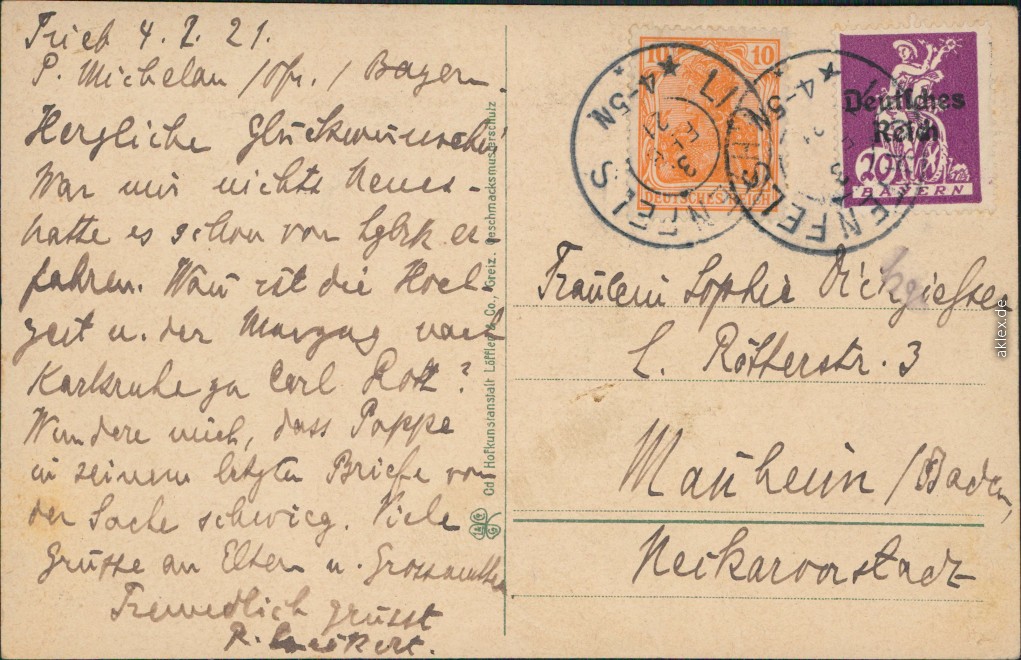 Trieb 4. 2. 21.
P. Michelau / Ofr. / Bayern.
Herzliche Glückwünsche!
War mir nichts Neues -
hatte es schon von er-
fahren. Wann ist die Hoch-
zeit u. der Wegzug nach
Karlsruhe zu Carl Kott?
Wundere mich, dass Pappe
in seinem letzten Briefe von
der Sache schwieg. Viele
Grüsse an Eltern u. Grossmutter
Freundlich grüsst
R.
Cd Hofkunstanstalt Löffler & Co., Greiz. Geschmacksmusterschutz
10 10
DEUTSCHES REICH
4-5N
Deutsches
Reich
20
BAYERN
4-5N
Fräulein Sophie Dickgiesser
L. Rötterstr. 3
Mannheim / Baden,
Neckarvorstadt
aklex.de